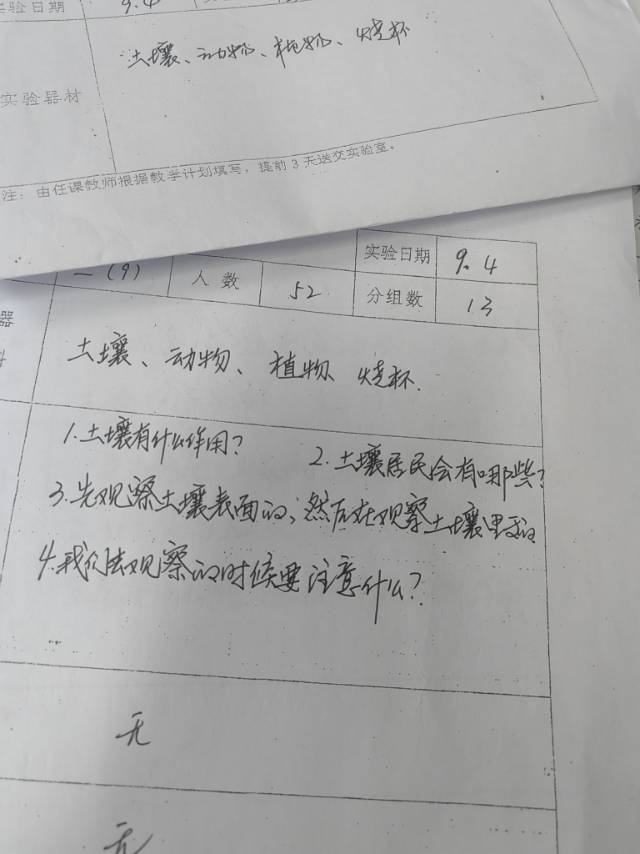 实验日期 9.4
实验器材
土壤、动物、植物、烧杯
注：由任课教师根据教学计划填写，提前 3 天送交实验室。
一(9) 人数 52 实验日期 9.4
分组数 13
器
土壤、动物、植物 烧杯.
1.土壤有什么作用? 2.土壤居民会有哪些?
3.先观察土壤表面的；然后在观察土壤里的
4.我们去观察的时候要注意什么?
无
无